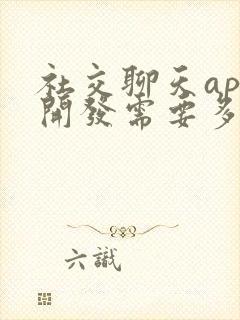 社交聊天ap
開發需要多
六識